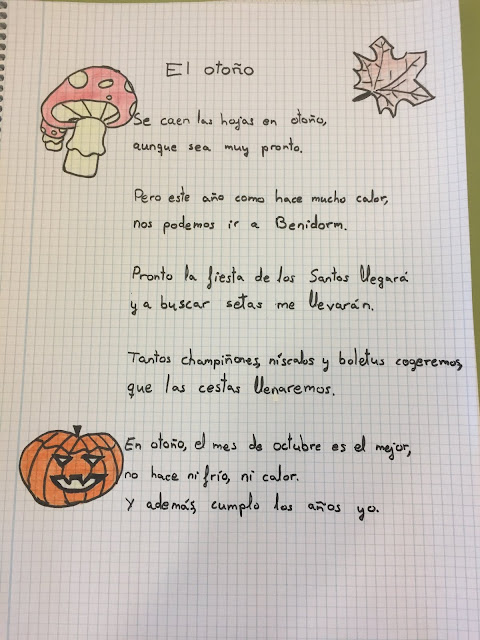 El otoño
Se caen las hojas en otoño,
aunque sea muy pronto.
Pero este año como hace mucho calor,
nos podemos ir a Benidorm.
Pronto la fiesta de los Santos llegará
y a buscar setas me llevarán.
Tantos champiñones, níscalos y boletus cogeremos,
que las cestas llenaremos.
En otoño, el mes de octubre es el mejor,
no hace ni frío, ni calor.
Y además, cumplo los años yo.